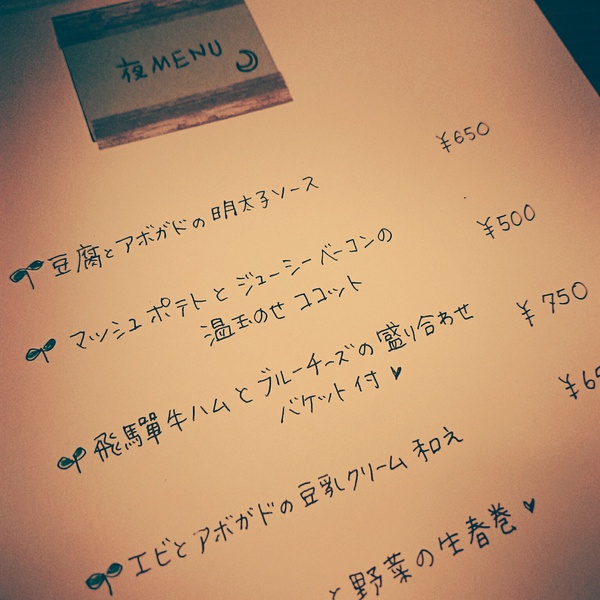 夜MENU
豆腐とアボガドの明太子ソース ¥650
マッシュポテトとジューシーベーコンの ¥500
温玉のせ ココット
飛騨牛ハムとブルーチーズの盛り合わせ ¥750
バケット付♥
エビとアボガドの豆乳クリーム和え ¥6
と野菜の生春巻♥